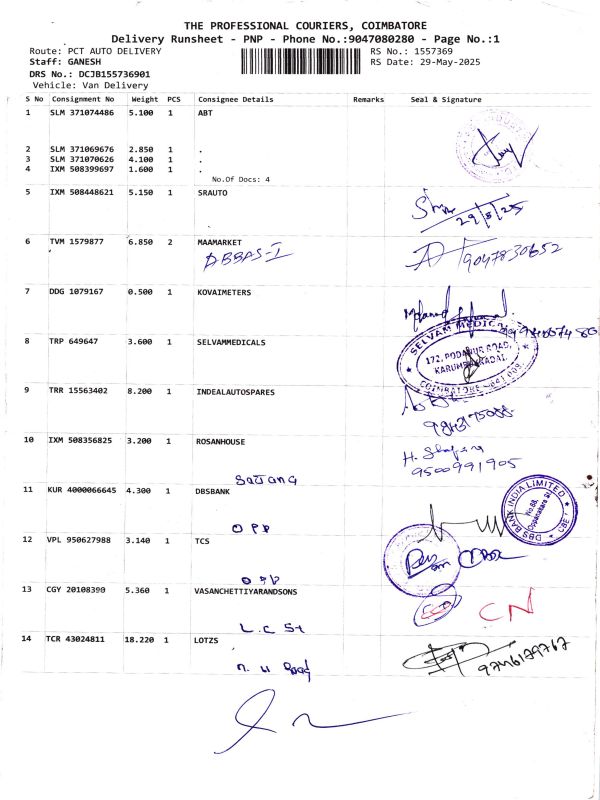 THE PROFESSIONAL COURIERS, COIMBATORE
Delivery Runsheet - PNP - Phone No.:9047080280 - Page No.:1
Route: PCT AUTO DELIVERY RS No.: 1557369
Staff: GANESH RS Date: 29-May-2025
DRS No.: DCJB155736901
Vehicle: Van Delivery
S No Consignment No Weight PCS Consignee Details Remarks Seal & Signature
1 SLM 371074486 5.100 1 ABT
2 SLM 371069676 2.850 1 .
3 SLM 371070626 4.100 1 .
4 IXM 508399697 1.600 1 .
No.Of Docs: 4
5 IXM 508448621 5.150 1 SRAUTO
29/5/25
6 TVM 1579877 6.850 2 MAAMARKET
9047830652
7 DDG 1079167 0.500 1 KOVAIMETERS
8 TRP 649647 3.600 1 SELVAMMEDICALS
SELVAM MEDIC
172, PODANUR ROAD,
COIMBATORE
9 TRR 15563402 8.200 1 INDEALAUTOSPARES
10 IXM 508356825 3.200 1 ROSANHOUSE
9500991905
11 KUR 4000066645 4.300 1 DBSBANK
DBS BANK INDIA LIMITED
OPP
12 VPL 950627988 3.140 1 TCS
13 CGY 20108390 5.360 1 VASANCHETTIYARANDSONS
CN
L.C St
14 TCR 43024811 18.220 1 LOTZS
9746179767